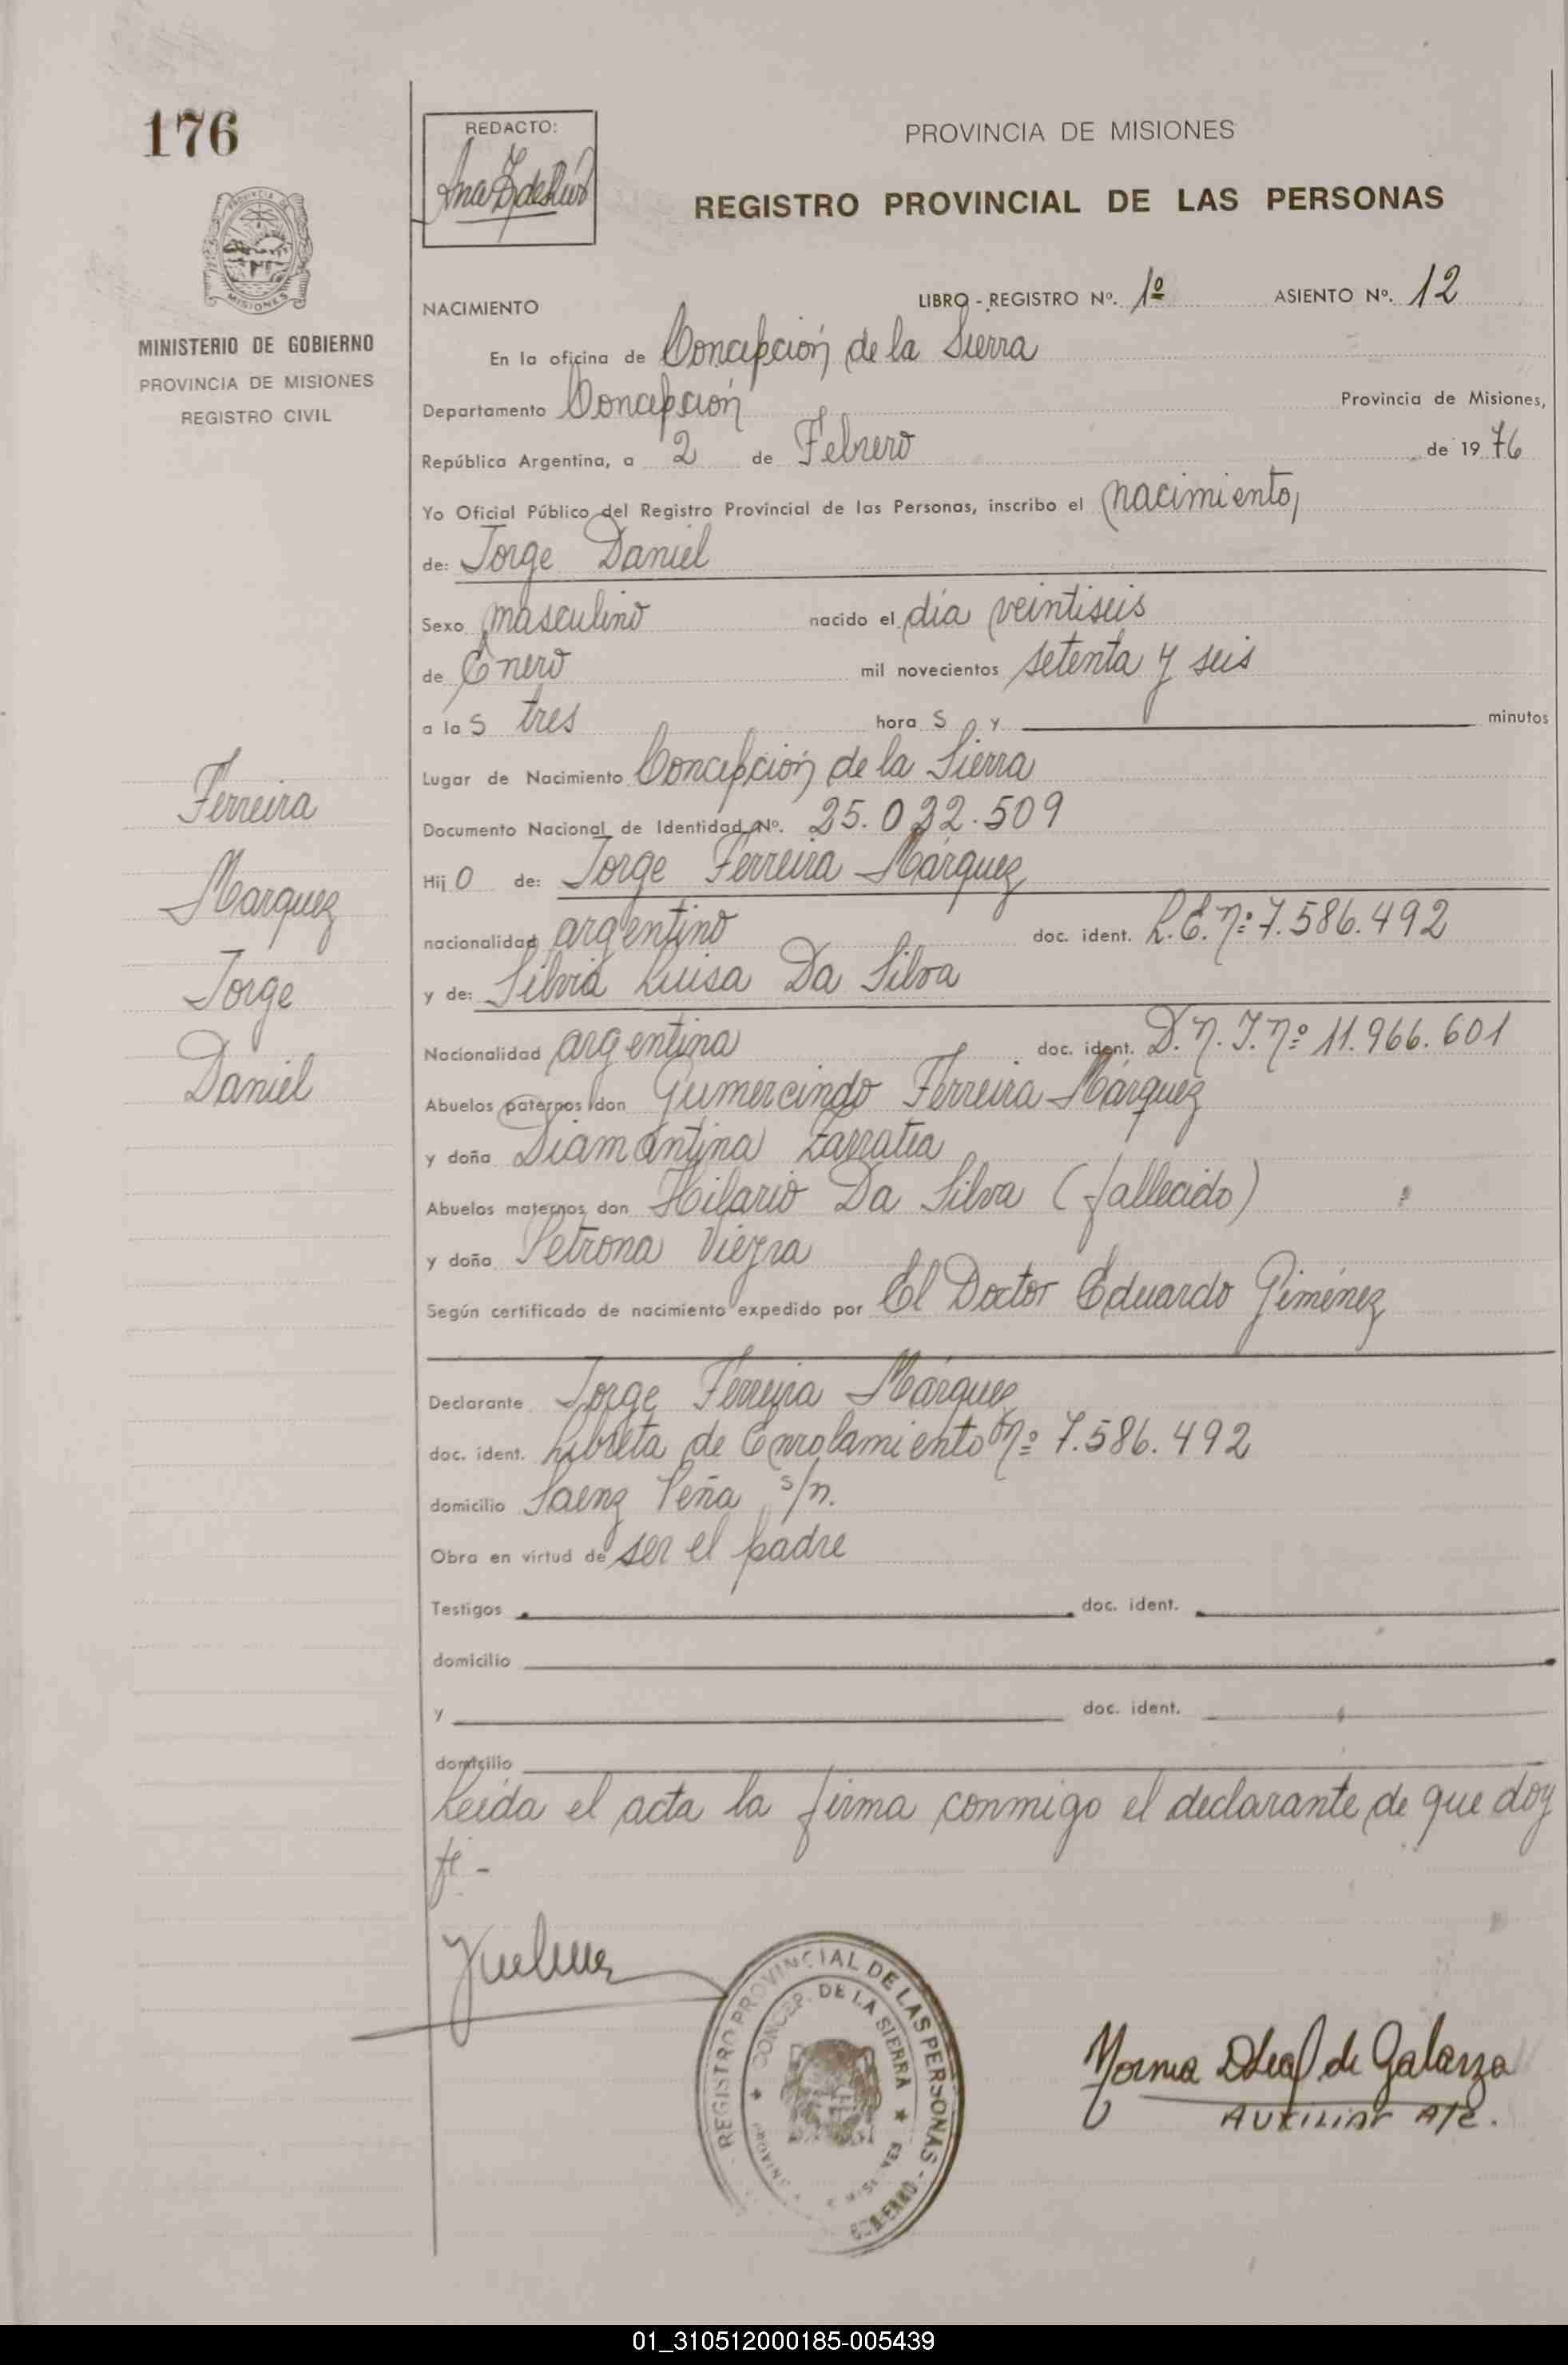 176
MINISTERIO DE GOBIERNO
PROVINCIA DE MISIONES
REGISTRO CIVIL
Ferreira
Marquez
Jorge
Daniel
REDACTO:
PROVINCIA DE MISIONES
REGISTRO PROVINCIAL DE LAS PERSONAS
NACIMIENTO LIBRO - REGISTRO Nº. 1º ASIENTO Nº. 12
En la oficina de Concepción de la Sierra
Departamento Concepción Provincia de Misiones,
República Argentina, a 2 de Febrero de 1976
Yo Oficial Público del Registro Provincial de las Personas, inscribo el nacimiento,
de: Jorge Daniel
Sexo masculino nacido el día veintiseis
de Enero mil novecientos setenta y seis
a las tres hora s y minutos
Lugar de Nacimiento Concepción de la Sierra
Documento Nacional de Identidad Nº. 25.022.509
Hijo de: Jorge Ferreira Márquez
nacionalidad argentino doc. ident. L.E. nº 7.586.492
y de: Silvia Luisa Da Silva
Nacionalidad argentina doc. ident. D.N.I. nº 11.966.601
Abuelos paternos don Gumercindo Ferreira Márquez
y doña Diamantina Zarratea
Abuelos maternos don Hilario Da Silva (fallecido)
y doña Petrona Vieyra
Según certificado de nacimiento expedido por El Doctor Eduardo Giménez
Declarante Jorge Ferreira Márquez
doc. ident. Libreta de Enrolamiento nº 7.586.492
domicilio Saenz Peña s/n.
Obra en virtud de ser el padre
Testigos doc. ident.
domicilio
y doc. ident.
domicilio
Leída el acta la firma conmigo el declarante de que doy
fé -
REGISTRO PROVINCIAL DE LAS PERSONAS - GOBIERNO
CONCEP. DE LA SIERRA
Norma de Galarza
AUXILIAR A/C.
01_310512000185-005439